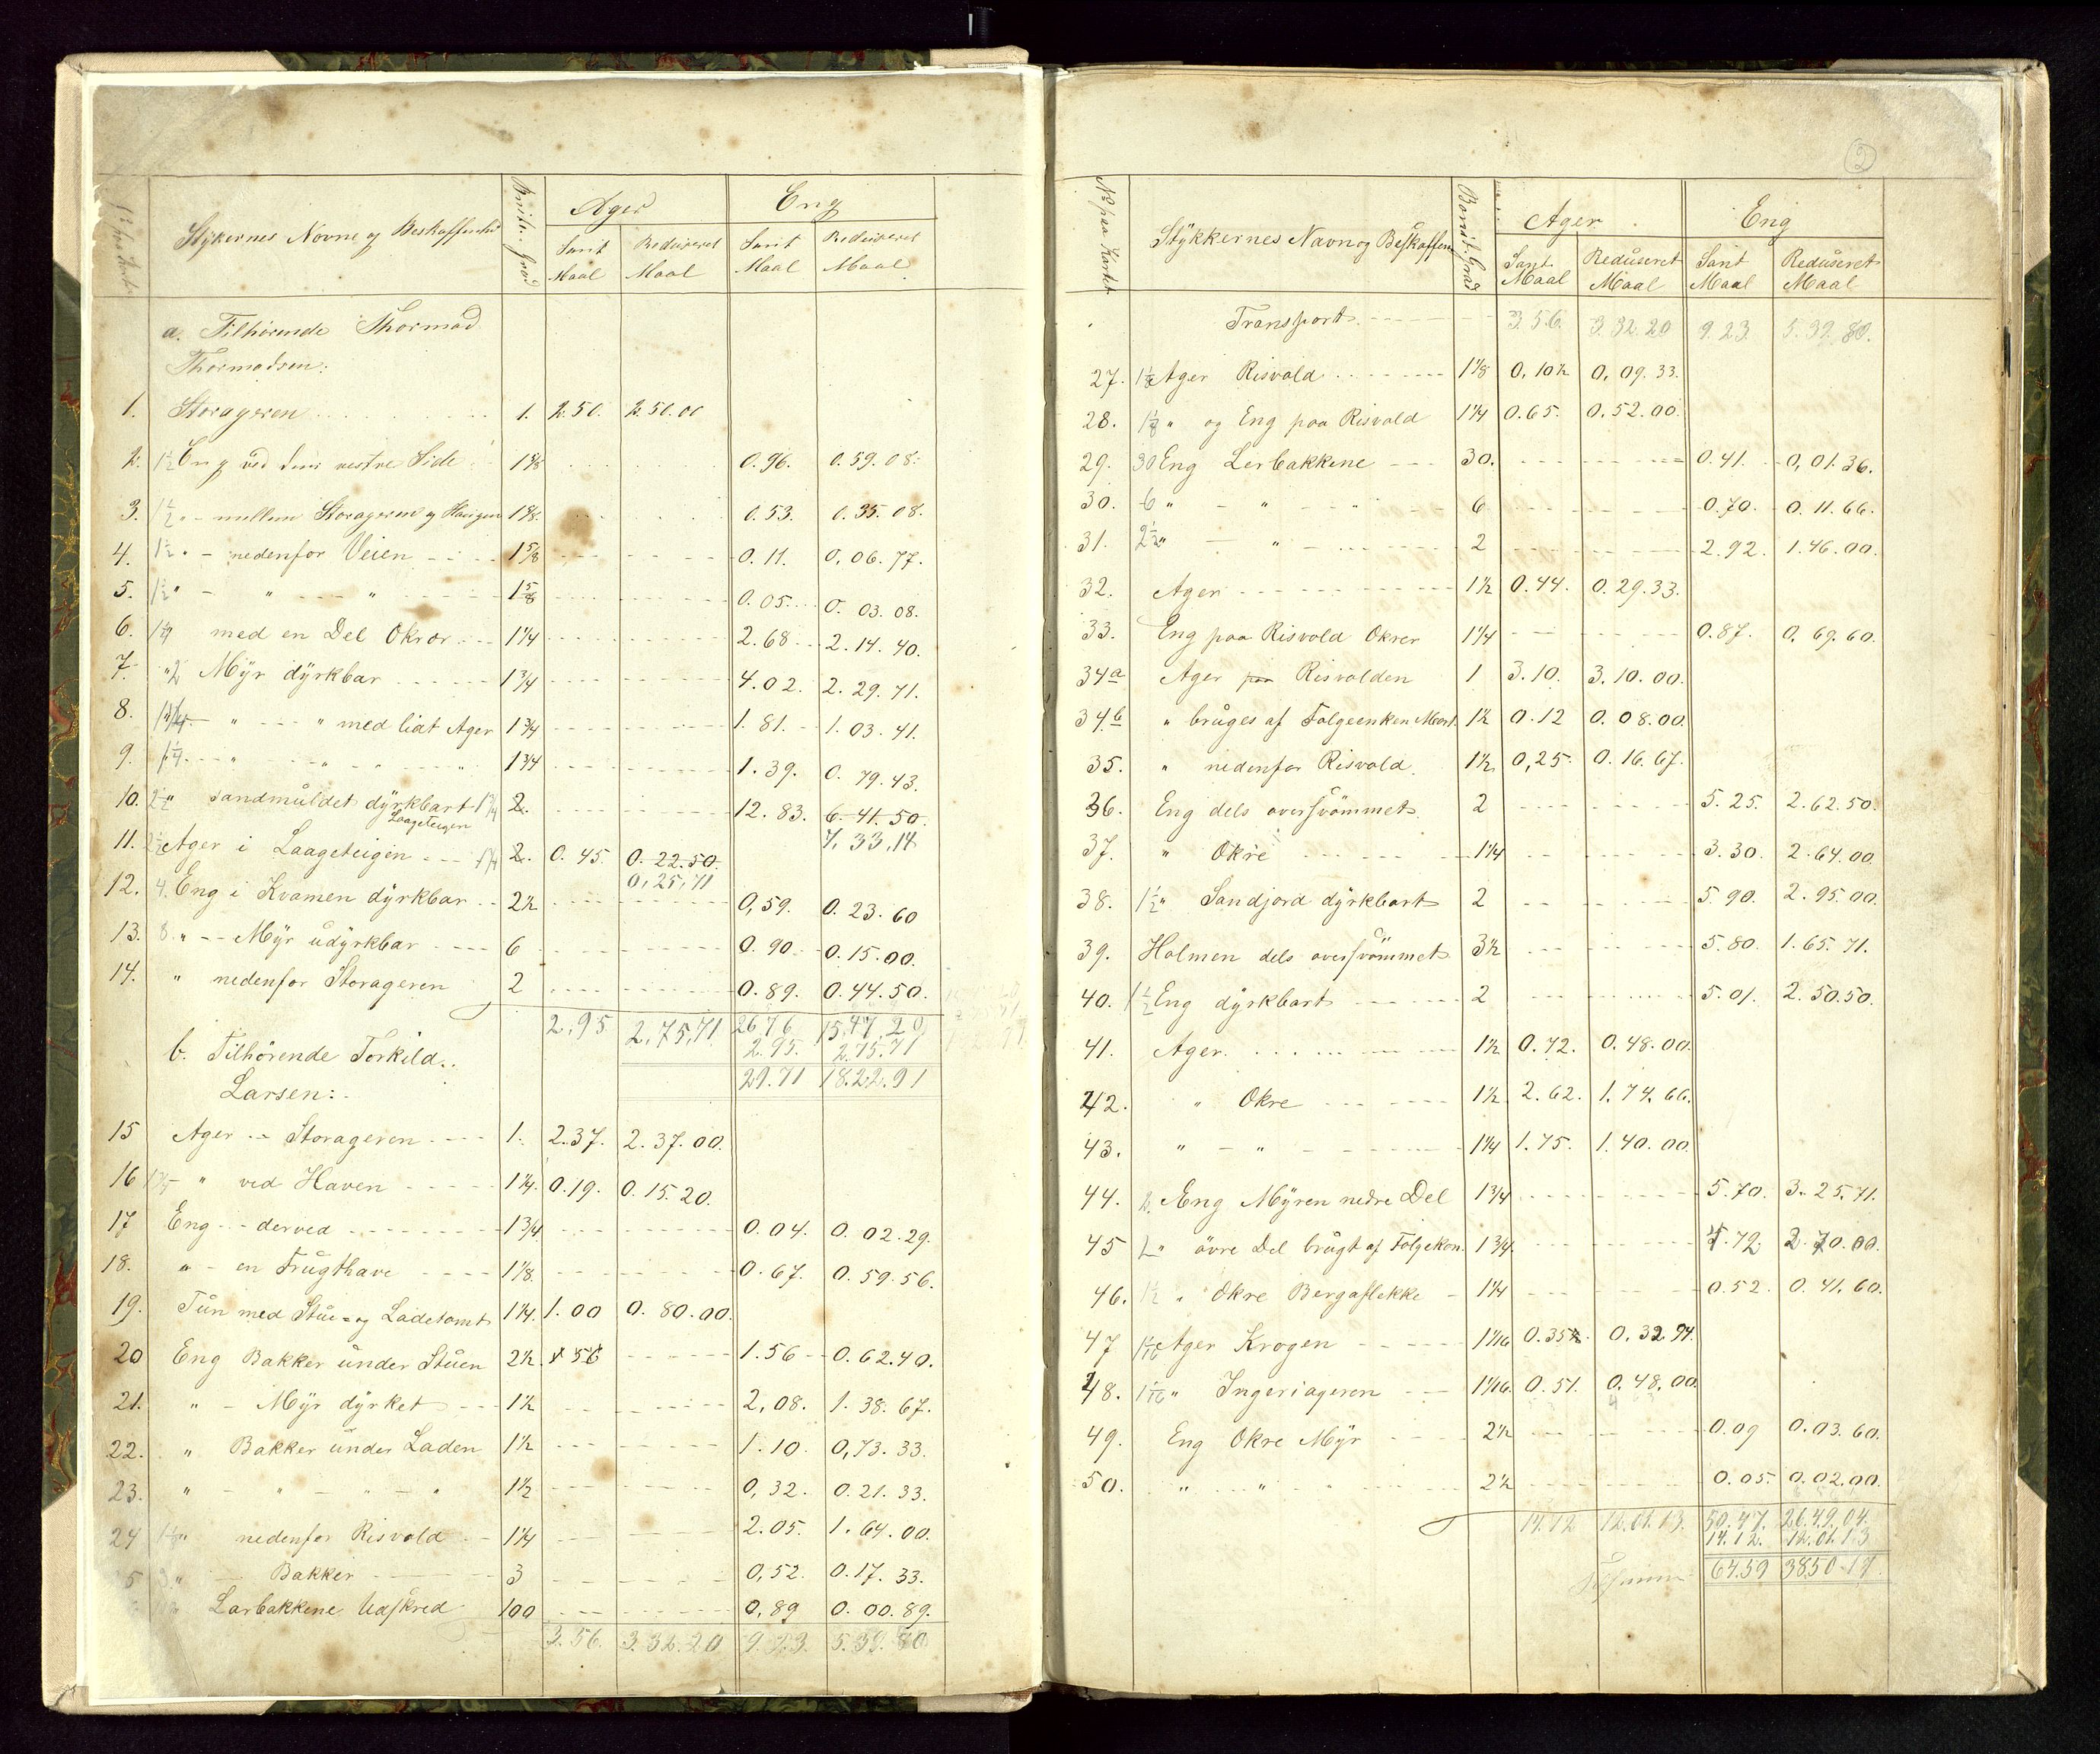 Stykernes Novne og Beskaffenhed Bonit. Grad Ager Eng
Sant Maal Reduseret Maal Sant Maal Reduseret Maal
a. Tilhörende Thormod
Thormodsen:
1. Storageren 1. 2.50. 2.50.00
2. 1½ Eng ved dens vestre Side 1⅝ 0.96. 0.59.08.
3. 1½ " - mellem Storageren og Haugen 1⅝. 0.53. 0.35.08.
4. 1½ " - nedenfor Veien 1⅝ 0.11. 0.06.77.
5. 1½ " - " - " 1⅝ 0.05. 0.03.08.
6. 1¼ med en Del Okror 1¼ 2.68 2.14.40.
7. " 2 Myr dyrkbar 1¾ 4.02. 2.29.71.
8. 1¾ " - " med lidt Ager 1¾ 1.81. 1.03.41.
9. " " " 1¾ 1.39. 0.79.43.
10. 2½ " sandmuldet dyrkbart 1¾ 2. 12.83. 6.41.50.
Laageteigen 7,33,14
11. 2½ Ager i Laageteigen 1¾ 2. 0.45. 0.22.50.
0,25,71
12. 4. Eng i Kvamen dyrkbar 2½ 0,59. 0.23.60
13. 8. " - Myr udyrkbar 6 0.90 0.15.00.
14. " nedenfor Storageren 2 0.89. 0.44.50.
2,95 2,75,71 26,76 15,47,20
b. Tilhörende Torkild 2.95. 2.75.71
Larsen: 29.71 18.22.91
15 Ager - Storageren 1. 2.37. 2.37.00.
16 " ved Haven 1¼. 0.19. 0.15.20.
17 Eng - derved 1¾ 0.04. 0.02.29.
18. " - en Frugthave 1⅛. 0.67. 0.59.56.
19. Tun med Stue- og Ladetomt 1¼. 1.00 0.80.00.
20 Eng Bakker under Stuen 2½. 1.56 1.56 0.62.40.
21. " - Myr dyrket 1½ 2,08. 1.38.67.
22. " Bakker under Laden 1½ 1.10. 0,73.33.
23. " - " - " - " 1½ 0,32. 0.21.33.
24 " nedenfor Risvold 1¼ 2.05. 1.64.00.
5 3 " Bakker 3 0,52. 0.17.33.
Larbakkene Udskred 100 0,89 0.00.89.
3.56. 3.32.20 9.23. 5.39.80
2
No paa Kartet Stykkernes Navn og Beskaffen Bonit. Grad Ager Eng
Sant Maal Reduseret Maal Sant Maal Reduseret Maal
Transport 3.56. 3.32.20 9.23. 5.39.80.
27. 1⅛ Ager Risvold 1⅛ 0.10½ 0,09.33.
28. 1⅛ " og Eng paa Risvold 1¼ 0.65. 0.52.00.
29. 30 Eng Lerbakkene 30. 0.41. 0,01.36.
30. 6 " - " - " 6 0.70. 0.11.66.
31. 2½ " - " - 2 2.92. 1.46.00.
32. Ager 1½ 0.44. 0.29.33.
33. Eng paa Risvold Okrer 1¼ 0.87. 0.69.60.
34a Ager paa Risvolden 1 3.10. 3.10.00.
34.b " bruges af Folgeenken Mart. 1½ 0.12 0.08.00.
35. " nedenfor Risvold. 1½ 0,25. 0.16.67.
36. Eng dels oversvömmet 2 5.25. 2.62.50.
37. " Okre 1¼ 3.30. 2.64.00.
38. 1½ " Sandjord dyrkbart 2 5.90. 2.95.00.
39. Holmen dels oversvömmet 3½ 5.80. 1.65.71.
40. 1½ Eng dyrkbart 2 5.01. 2.50.50.
41. Ager. 1½ 0.72. 0.48.00.
42. " Okre 1½ 2.62. 1.74.66.
43. " - " 1¼ 1.75. 1.40.00.
44. 2. Eng Myren nedre Del 1¾ 5.70. 3.25.71.
45 2 " övre Del brugt af Folgekon. 1¾. 4.72 2.70.00.
46. 1½ " Okre Bergaflekke 1¼ 0.52. 0.41.60.
47 1 1/16 Ager Krogen 1 1/16 0.35½. 0.32.94.
48. 1 1/16 " Ingeriageren 1 1/16. 0.51. 0,48,00.
4
49. Eng Okre Myr 2½ 0.09 0.03.60.
50. " " 2½ 0.05. 0.02.00.
14.12 12.01.13. 50.47. 26.49.04.
14.12. 12.01.13
64.59 38.50.17.